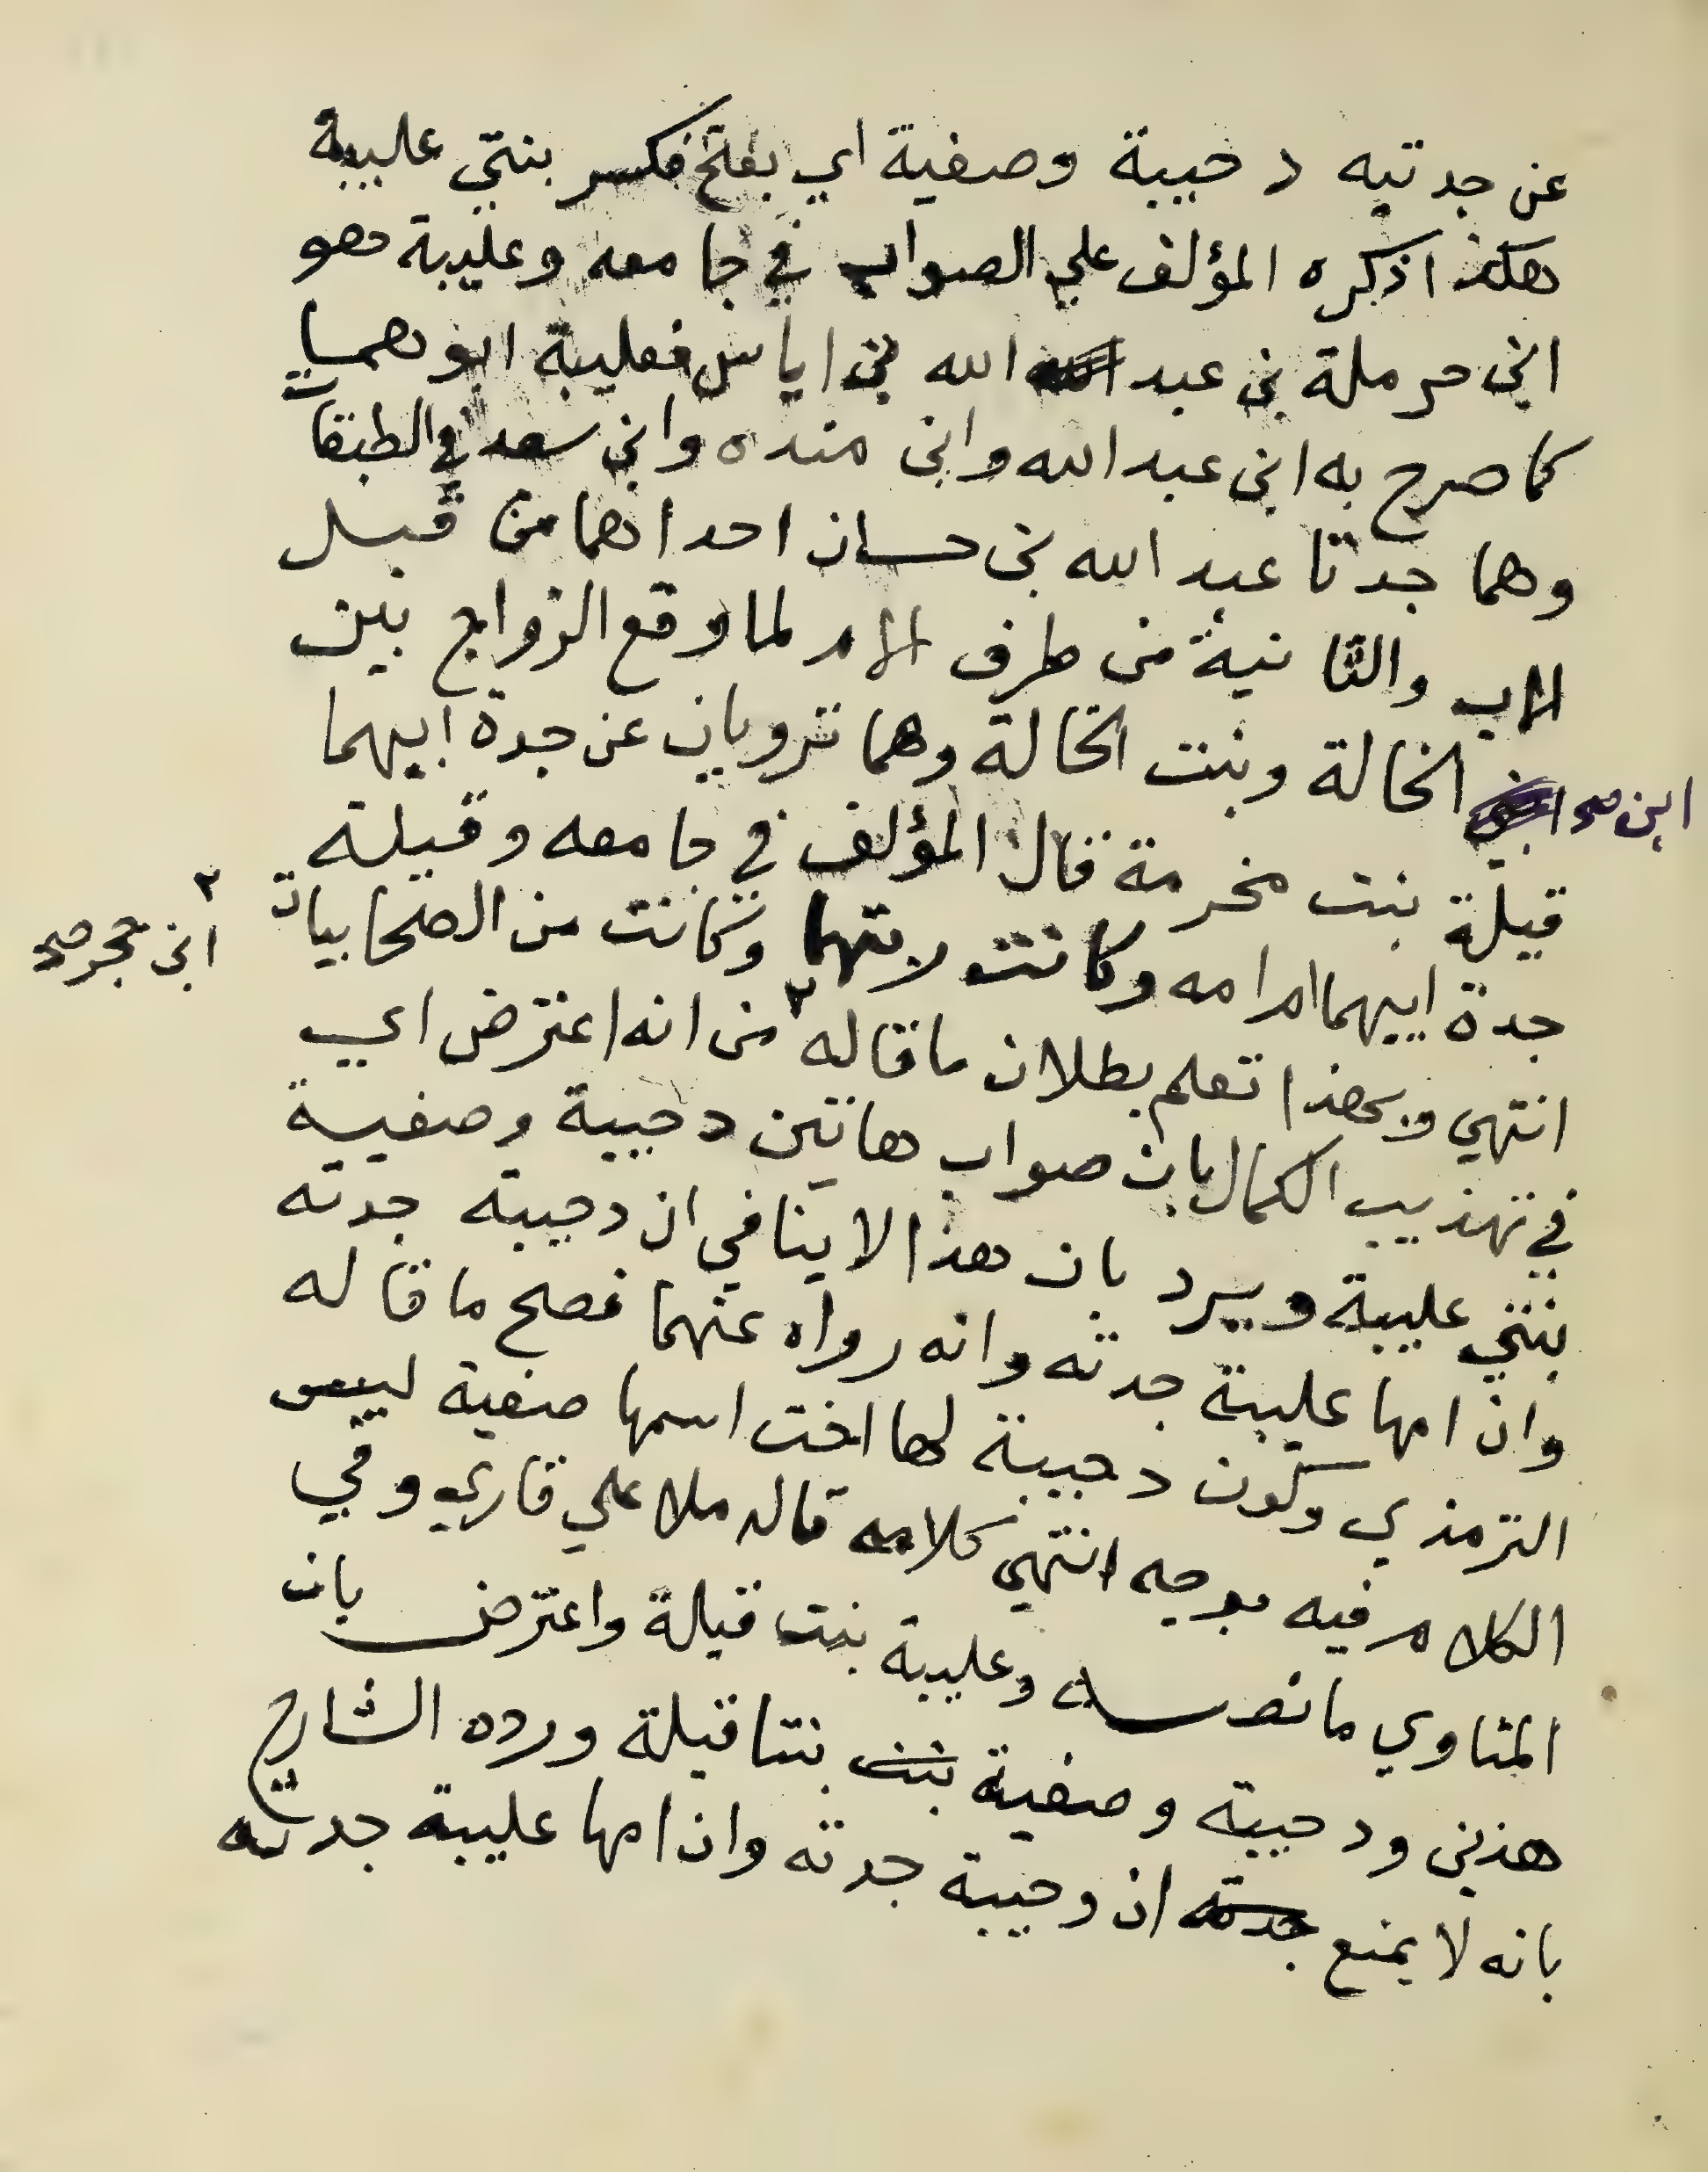 عن جدتيه دحيبة وصفية اي بفتح فكسر بنتي عليبة
هكذا ذكره المؤلف علي الصواب في جامعه وعليبة هو
ابن حرملة بن عبد الله بن اياس فعليبة ابوهما
كما صرح به ابن عبد الله وابن منده وابن سعد في الطبقات
وهما جدتا عبد الله بن حسان احداهما من قبل
الاب والثانية من طرف الام لما وقع الزواج بين
ابن صح الخالة وبنت الخالة وهما ترويان عن جدة ابيهما
قيلة بنت مخرمة قال المؤلف في جامعه وقيلة
جدة ابيهما ام امه وكانت ربتهما وكانت من الصحابيات
انتهي وبهذا تعلم بطلان ما قاله ٢ من انه اعترض اي
٢ ابن حجر صح
في تهذيب الكمال بان صواب هاتين دحيبة وصفية
بنتي عليبة ويرد بان هذا لا ينافي ان دحيبة جدته
وان امها عليبة جدته وانه رواه عنهما فصح ما قاله
الترمذي وكون دحيبة لها اخت اسمها صفية ليس
الكلام فيه بوجه انتهي كلامه قاله ملا علي قاري وفي
المناوي ما نصه وعليبة بنت قيلة واعترض بان
هذين ودحيبة وصفية بنت بنتا قيلة ورده الشارح
بانه لا يمنع جدته ان دحيبة جدته وان امها عليبة جدته